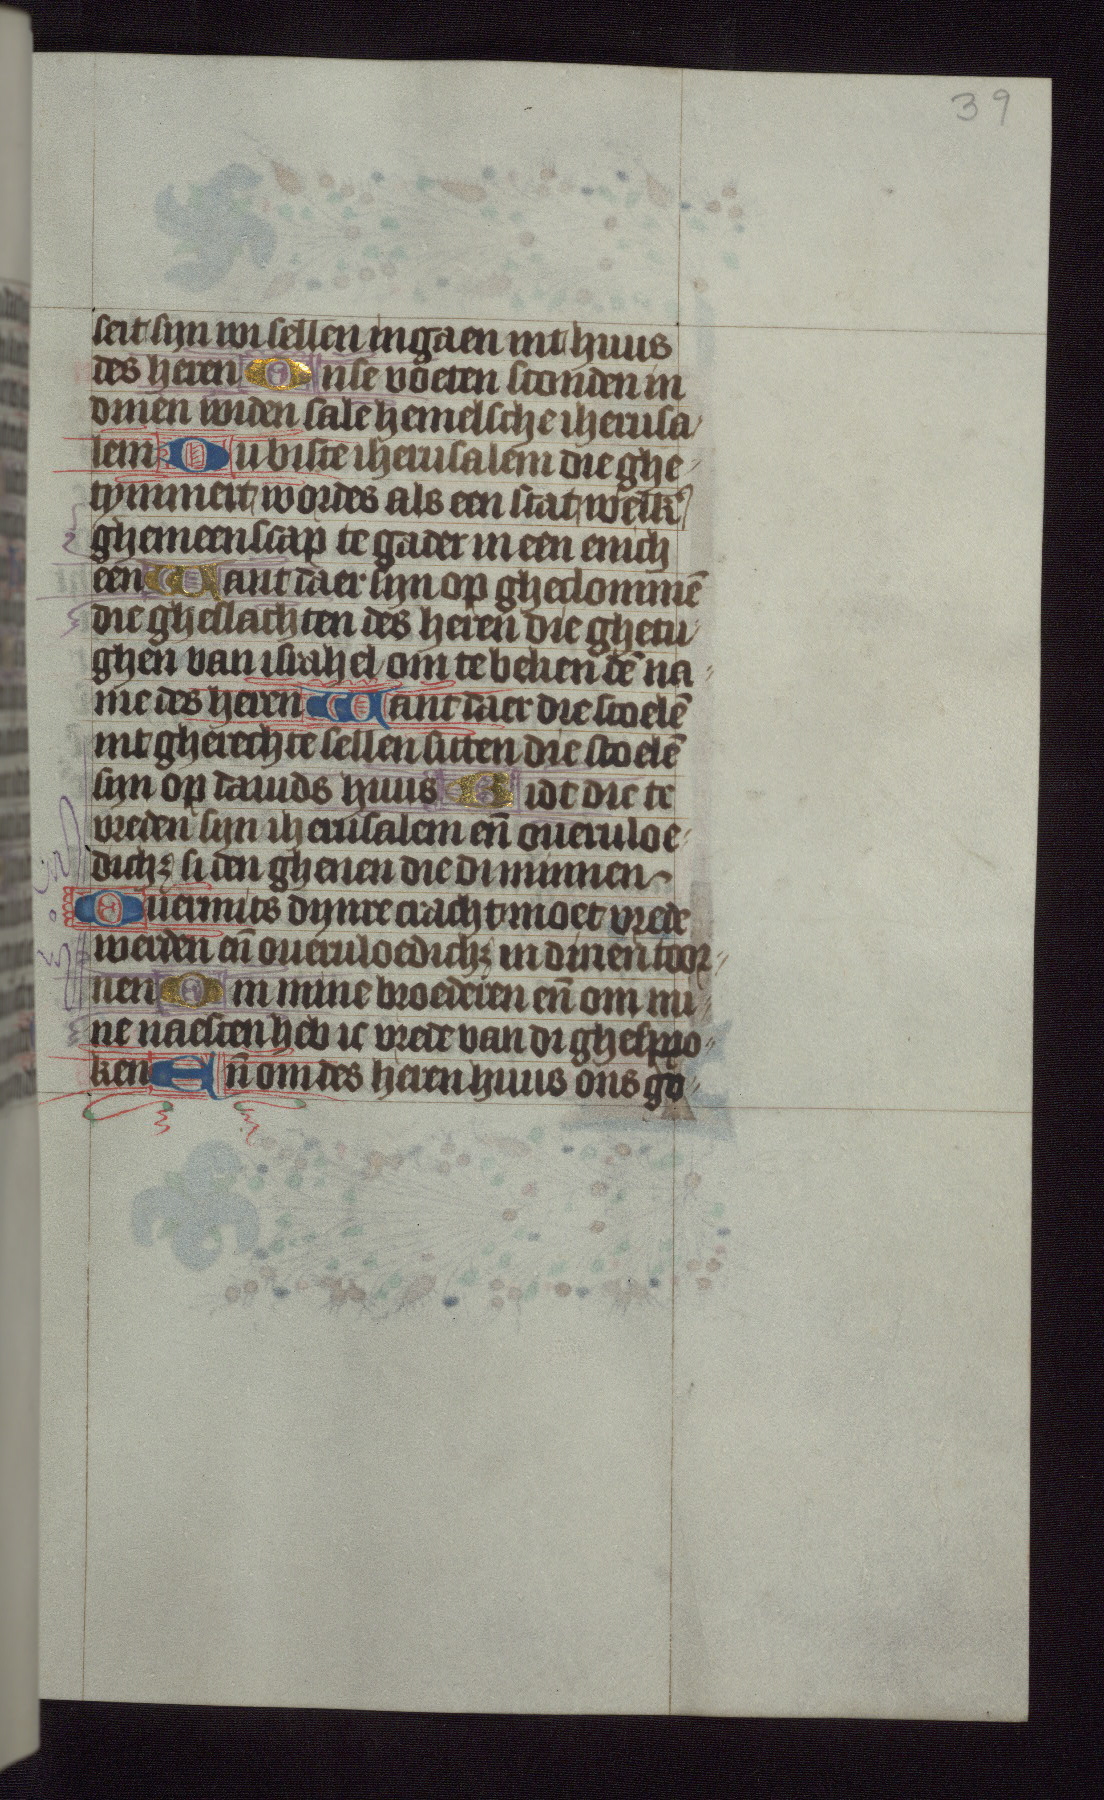 39
seit sijn wi sellen ingaen int huus
des heren Onse voeten stonden in
dinen vriden sale hemelsche iherusa
lem Du biste iherusalem die ghe
tymmert wordes als een stat welk
ghemeenscap te gader in een enich
een Want daer sijn op gheclommē
die gheslachten des heren die ghetu
ghen van israhel om te belien dē na
me des heren Want daer die stoelē
int gherechte sellen sitten die stoelē
sijn op dauids huus Bidt die te
vreden sijn iherusalem eñ oueruloe
dich si den ghenen die di minnen
Ouermits dijnre cracht moet vrede
werden eñ oueruloedich in dinen toor
nen Om mine broederen eñ om mi
ne naesten heb ic vrede van di ghespro
ken Eñ om des heren huus ons go